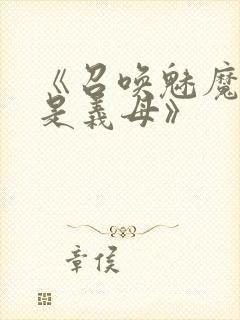 《召唤魅魔
是義母》
章侯